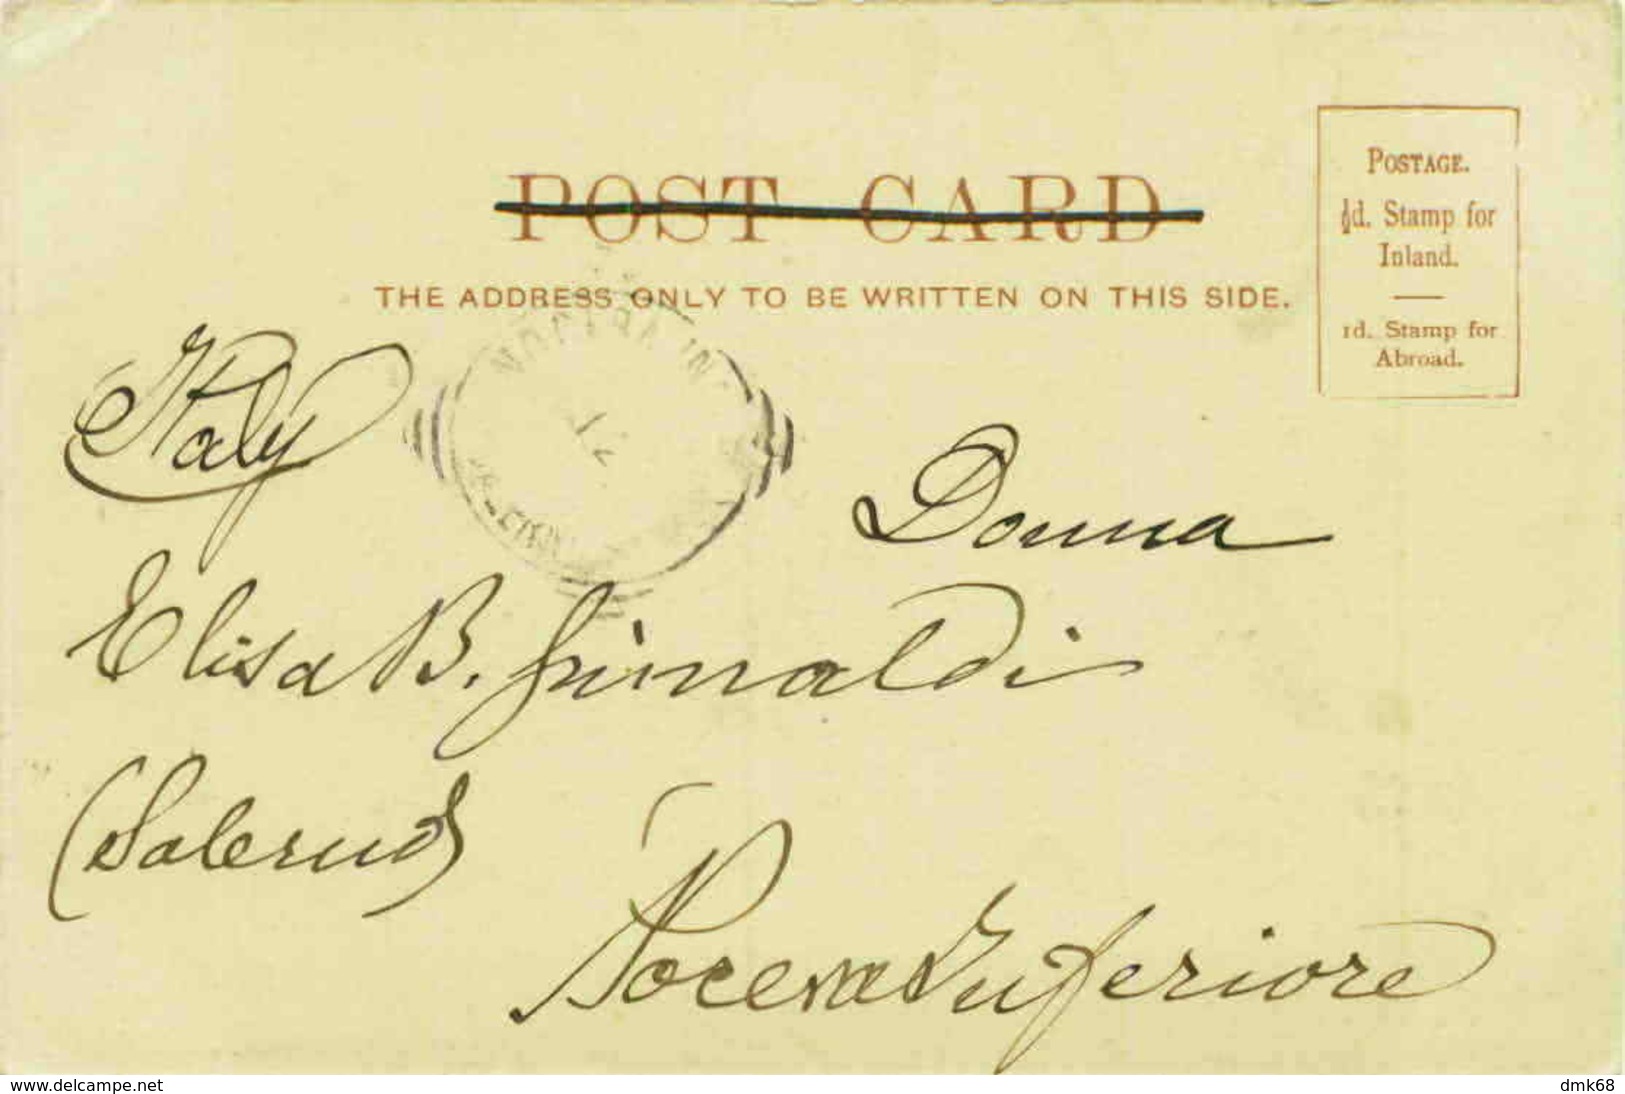 POST CARD
THE ADDRESS ONLY TO BE WRITTEN ON THIS SIDE.
POSTAGE.
½d. Stamp for
Inland.
1d. Stamp for
Abroad.
Italy
Donna
Elisa B. Grimaldi
(Salerno)
Nocera Inferiore
www.delcampe.net
dmk68